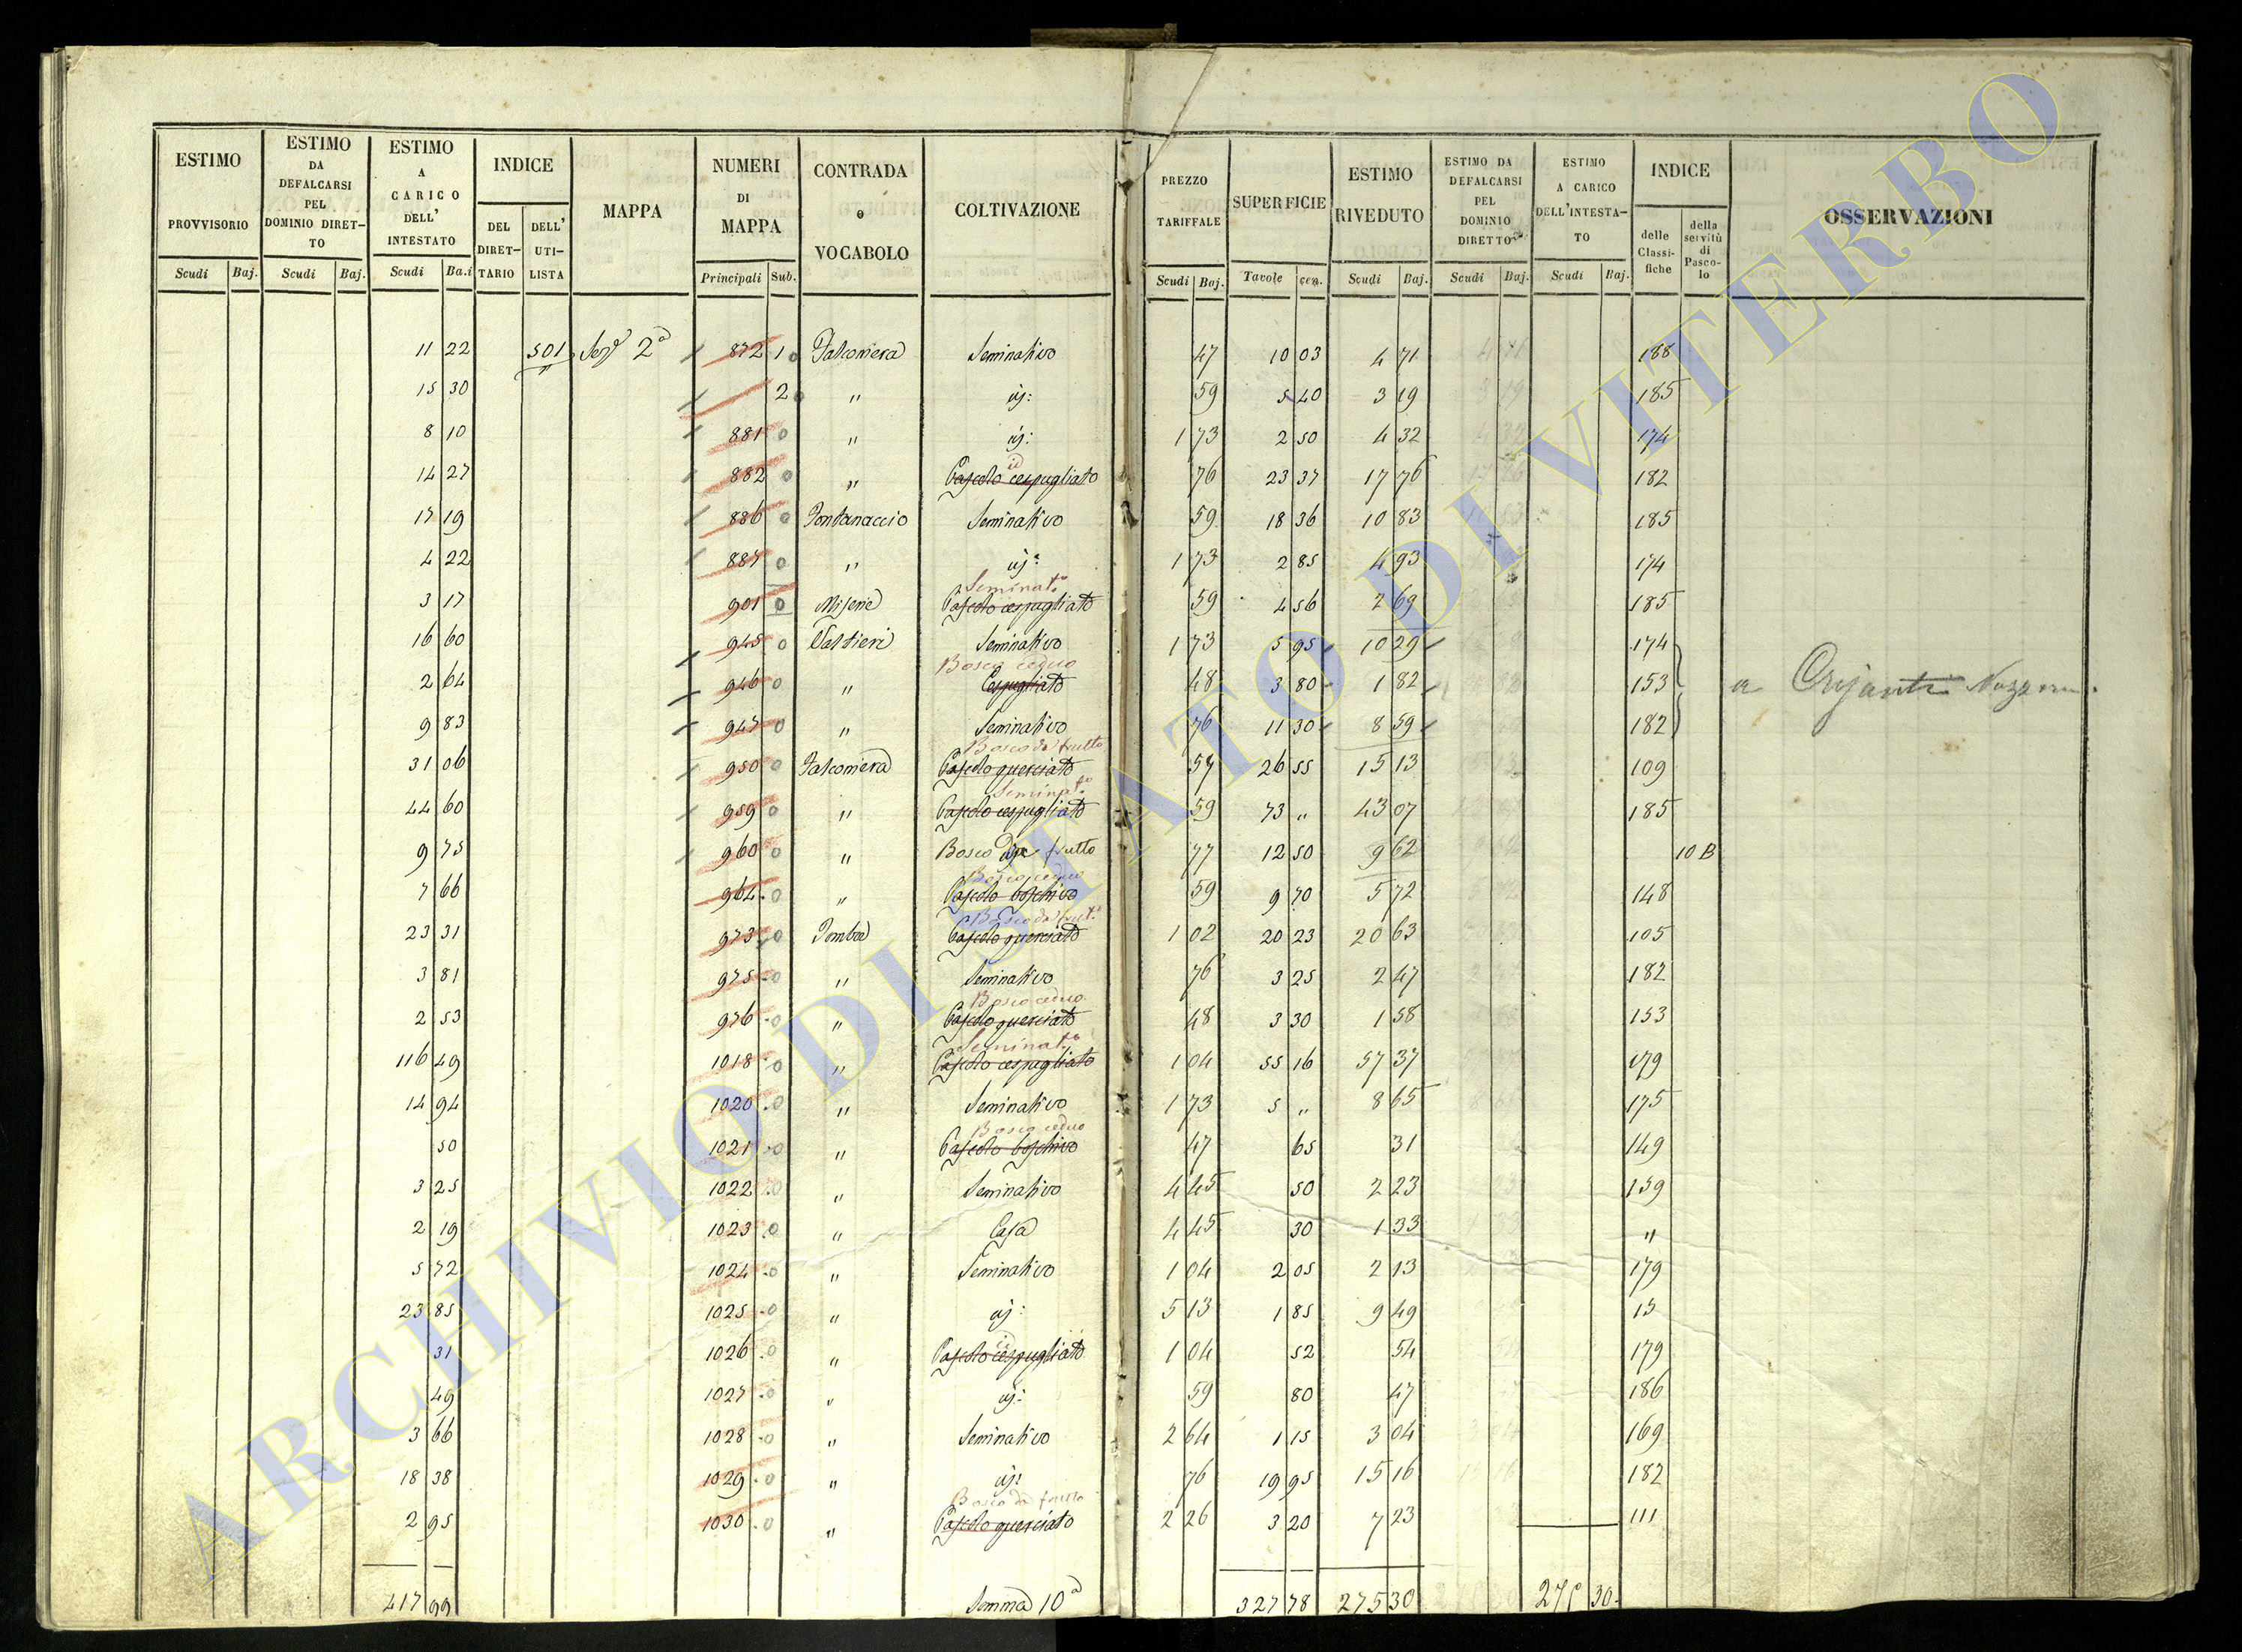 ESTIMO PROVVISORIO Scudi Baj.
ESTIMO DA DEFALCARSI PEL DOMINIO DIRETTO Scudi Baj.
ESTIMO A CARICO DELL' INTESTATO Scudi Ba.i
INDICE DEL DIRETTARIO DELL' UTILISTA
MAPPA
NUMERI DI MAPPA Principali Sub.
CONTRADA o VOCABOLO
COLTIVAZIONE
PREZZO TARIFFALE Scudi Baj.
SUPERFICIE Tavole cen.
ESTIMO RIVEDUTO Scudi Baj.
ESTIMO DA DEFALCARSI PEL DOMINIO DIRETTO Scudi Baj.
ESTIMO A CARICO DELL'INTESTATO Scudi Baj.
INDICE delle Classifiche della servitù di Pascolo
OSSERVAZIONI
11 22 501 2ª 872 1 0 Falconiera Seminativo 47 10 03 4 71 188
15 30 2 0 " 59 5 40 3 19 185
8 10 881 0 " 1 73 2 50 4 32 174
14 27 882 0 " Pascolo cespugliato id 76 23 37 17 76 182
17 19 886 0 Fontanaccio Seminativo 59 18 36 10 83 185
4 22 887 0 " 1 73 2 85 4 93 174
Seminat.º
3 17 901 0 Pascolo cespugliato 59 4 56 2 69 185
16 60 945 0 Valtieri Seminativo 1 73 5 95 10 29 174
Bosco ceduo
2 64 946 0 " Cespugliato 48 3 80 1 82 153 a
9 83 947 0 " Seminativo 76 11 30 8 59 182
Bosco da frutto
31 06 950 0 Falconiera Pascolo querciato 57 26 55 15 13 109
Seminat.º
44 60 959 0 " Pascolo cespugliato 59 73 " 43 07 185
9 75 960 0 " Bosco da frutto 77 12 50 9 62 10 B
Bosco ceduo
7 66 964 0 " Pascolo boschivo 59 9 70 5 72 148
Bosco da frut.º
23 31 973 0 Pomba Pascolo querciato 1 02 20 23 20 63 105
3 81 975 0 " Seminativo 76 3 25 2 47 182
Bosco ceduo
2 53 976 0 " Pascolo querciato 48 3 30 1 58 153
Seminat.º
116 49 1018 0 " Pascolo cespugliato 1 04 55 16 57 37 179
14 94 1020 0 " Seminativo 1 73 5 " 8 65 175
Bosco ceduo
50 1021 0 " Pascolo boschivo 47 65 31 149
3 25 1022 0 " Seminativo 4 45 50 2 23 159
2 19 1023 0 " Casa 4 45 30 1 33 "
5 72 1024 0 " Seminativo 1 04 2 05 2 13 179
23 85 1025 0 " 5 13 1 85 9 49 15
31 1026 0 " Pascolo cespugliato id 1 04 52 54 179
49 1027 0 " 59 80 47 186
3 66 1028 0 " Seminativo 2 64 1 15 3 04 169
18 38 1029 0 " 76 19 95 15 16 182
Bosco da frutto
2 95 1030 0 " Pascolo querciato 2 26 3 20 7 23 111
417 99 Somma 10ª 327 78 275 30 275 30
ARCHIVIO DI STATO DI VITERBO